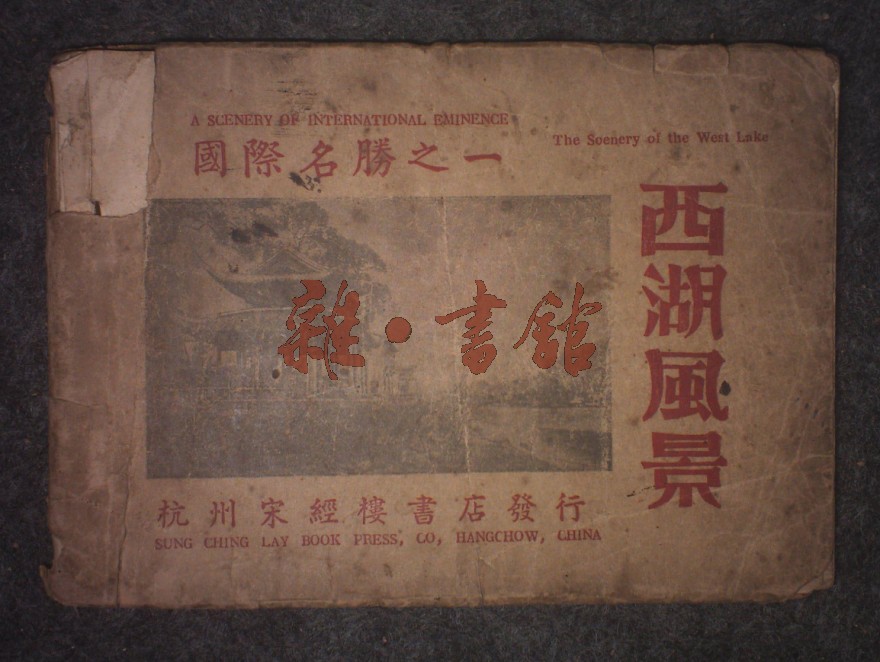 A SCENERY OF INTERNATIONAL EMINENCE
國際名勝之一
The Scenery of the West Lake
西湖風景
雜·書館
杭州宋經樓書店發行
SUNG CHING LAY BOOK PRESS, CO, HANGCHOW, CHINA